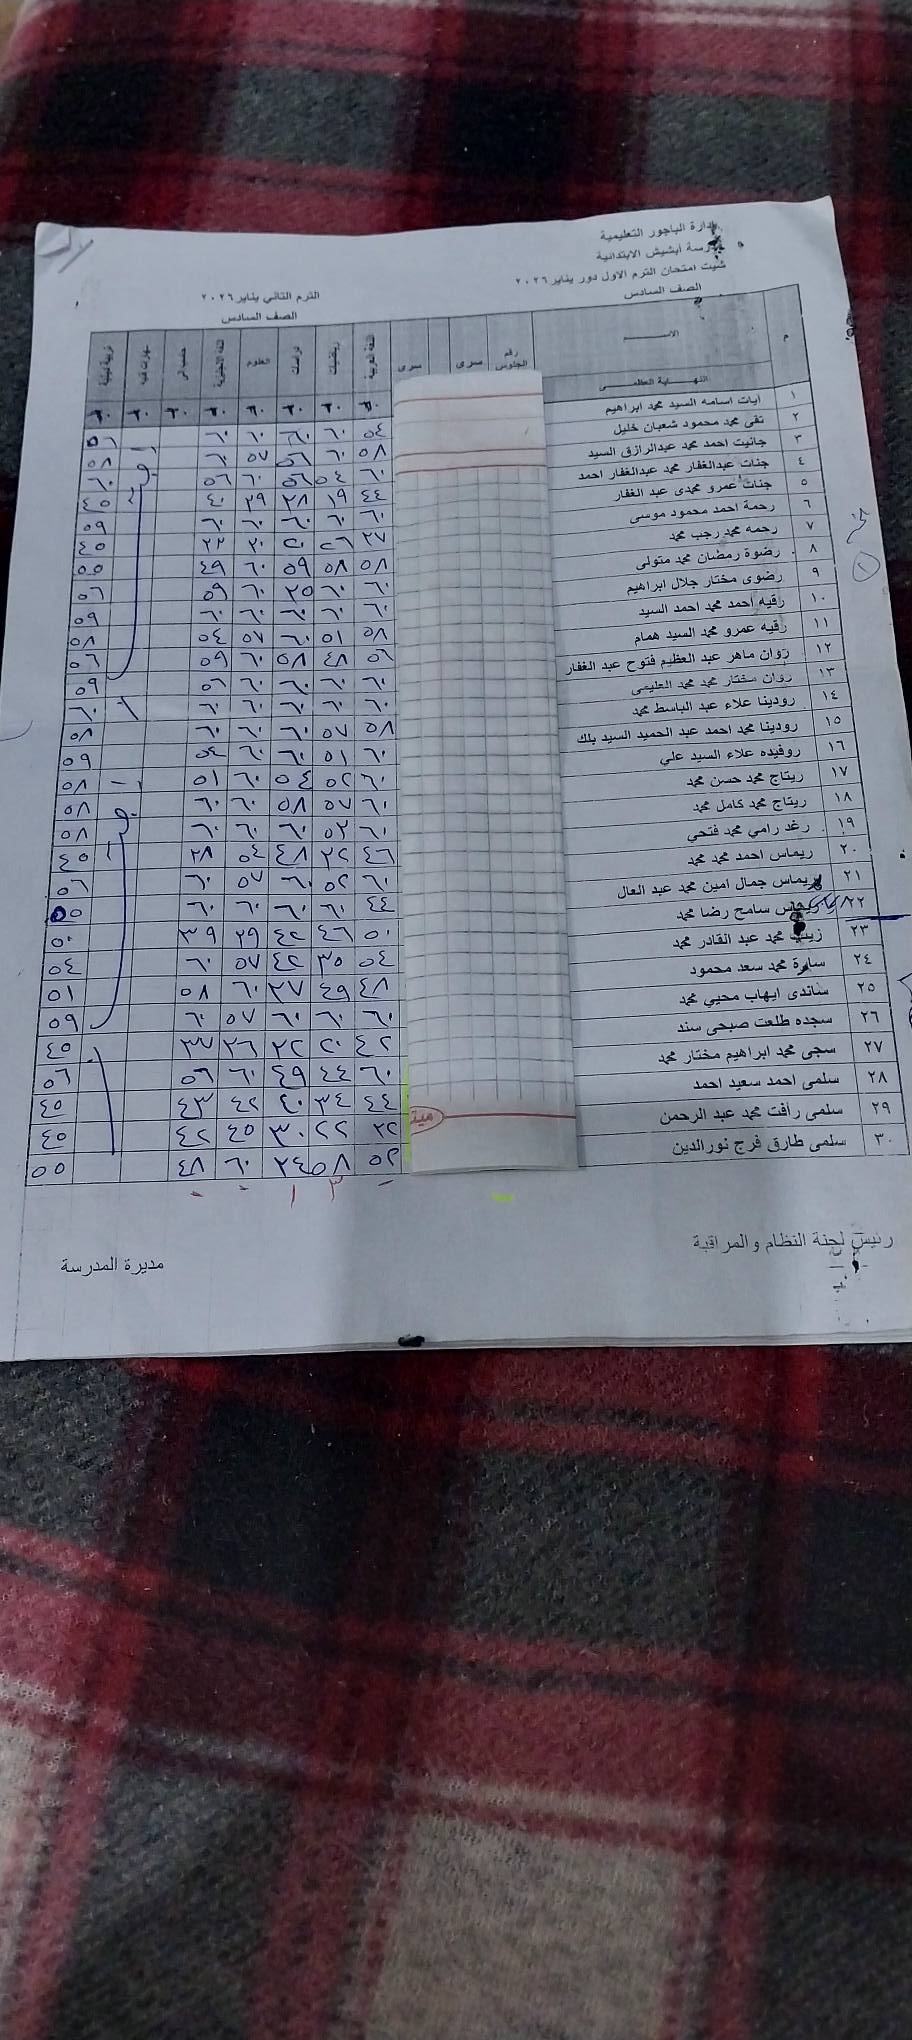 إدارة الباجور التعليمية
مدرسة أبشيش الابتدائية
شيت امتحان الترم الاول دور يناير ٢٠٢٦
الصف السادس
الترم الثاني يناير ٢٠٢٦
الصف السادس
م الاســـم رقم الجلوس سرى سرى اللغة العربية رياضيات دراسات العلوم اللغة الانجليزية حاسب الى مهارات فنيه تربية دينية
النهـــاية العظمـــى
١ آيات اسامه السيد محمد ابراهيم ٥٤ ٦٠ ٦٠ ٦٠ ٦٠ ٥٦
٢ تقى محمد محمود شعبان خليل ٥٨ ٦٠ ٥٦ ٥٧ ٦٠ ٥٨
٣ جانيت احمد محمد عبدالرازق السيد ٦٠ ٥٤ ٥٦ ٦٠ ٥٦ ٦٠
٤ جنات عبدالغفار محمد عبدالغفار احمد ٤٤ ١٩ ٢٨ ٢٩ ٤٠ ٤٥
٥ جنات عمرو مجدى عبد الغفار ٦٠ ٦٠ ٦٠ ٦٠ ٦٠ ٥٩
٦ رحمة احمد محمود موسى ٢٧ ٢٦ ٢٠ ٢٢ ٤٥
٧ رحمه محمد رجب محمد ٥٨ ٥٨ ٥٩ ٦٠ ٤٩ ٥٥
٨ رضوة رمضان محمد متولى ٦٠ ٦٠ ٢٥ ٦٠ ٥٩ ٥٦
٩ رضوى مختار جلال ابراهيم ٦٠ ٦٠ ٦٠ ٦٠ ٦٠ ٥٩
١٠ رقيه احمد محمد احمد السيد ٥٨ ٥١ ٦٠ ٥٧ ٥٤ ٥٨
١١ رقيه عمرو محمد السيد همام ٥٦ ٤٨ ٥٨ ٦٠ ٥٩ ٥٦
١٢ روان ماهر عبد العظيم فتوح عبد الغفار ٦٠ ٦٠ ٦٠ ٦٠ ٥٦ ٥٩
١٣ روان مختار محمد محمد العليمى ٦٠ ٦٠ ٦٠ ٦٠ ٦٠ ٦٠
١٤ رودينا علاء عبد الباسط محمد ٥٨ ٥٧ ٦٠ ٦٠ ٦٠ ٥٨
١٥ رودينا محمد احمد عبد الحميد السيد بلك ٦٠ ٥١ ٦٠ ٦٠ ٥٤ ٥٩
١٦ روفيده علاء السيد علي ٦٠ ٥٢ ٥٤ ٦٠ ٥١ ٥٨
١٧ ريتاج محمد حسن محمد ٦٠ ٥٧ ٥٨ ٦٠ ٦٠ ٥٨
١٨ ريتاج محمد كامل محمد ٦٠ ٥٢ ٦٠ ٦٠ ٦٠ ٥٨
١٩ رغد رامي محمد فتحي ٤٦ ٢٢ ٤٨ ٥٤ ٢٨ ٤٥
٢٠ ريماس احمد محمد محمد ٦٠ ٥٢ ٦٠ ٥٧ ٦٠ ٥٦
٢١ ريماس جمال امين محمد عبد العال ٤٤ ٦٠ ٦٠ ٦٠ ٦٠
٢٢ ريماس سامح رضا محمد ٥٠ ٤٦ ٤٢ ٢٩ ٣٩ ٥٠
٢٣ زينب محمد عبد القادر محمد ٥٤ ٣٥ ٤٢ ٥٧ ٦٠ ٥٤
٢٤ سارة محمد سعد محمود ٤٨ ٤٩ ٣٧ ٦٠ ٥٨ ٥١
٢٥ ساندى ايهاب محيي محمد ٦٠ ٦٠ ٦٠ ٥٧ ٦٠ ٥٩
٢٦ سجده طلعت صبحى سند ٤٢ ٢٠ ٢٢ ٢٦ ٣٧ ٤٥
٢٧ سجى محمد ابراهيم مختار محمد ٦٠ ٤٤ ٤٩ ٦٠ ٥٦ ٥٦
٢٨ سلمى احمد سعيد احمد ٤٤ ٣٤ ٤٠ ٤٢ ٤٣ ٤٥
٢٩ سلمى رأفت محمد عبد الرحمن ٢٢ ٢٢ ٣٠ ٤٥ ٤٢ ٤٥
٣٠ سلمى طارق فرج نورالدين ٥٢ ٥٨ ٢٤ ٦٠ ٤٨ ٥٥
رئيس لجنة النظام والمراقبة
مديرة المدرسة